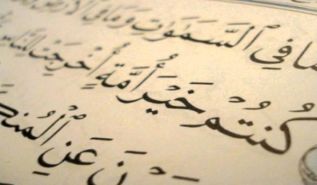 مَا فِي ٱلسَّمَٰوَٰتِ وَمَا فِي ٱلْأَرْضِ
كُنتُمْ خَيْرَ أُمَّةٍ أُخْرِجَتْ لِلنَّاسِ
عَنِ ٱلْمُنكَرِ